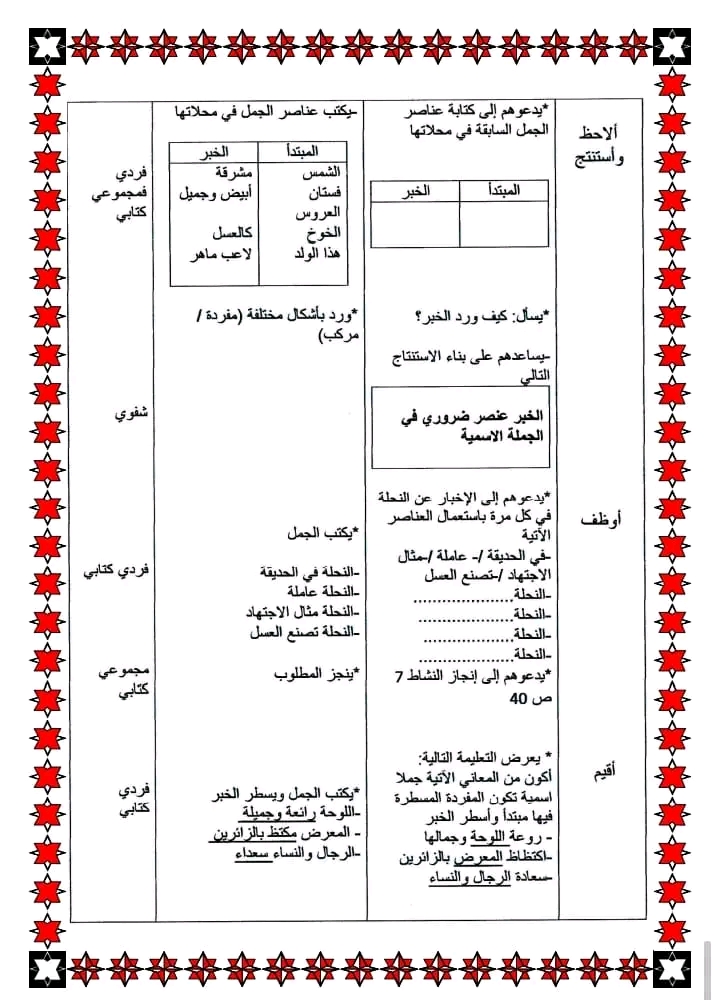 ألاحظ
وأستنتج
*يدعوهم إلى كتابة عناصر
الجمل السابقة في محلاتها
المبتدأ الخبر
-يكتب عناصر الجمل في محلاتها
المبتدأ الخبر
الشمس مشرقة
فستان أبيض وجميل
العروس
الخوخ كالعسل
هذا الولد لاعب ماهر
فردي
فمجموعي
كتابي
*يسأل: كيف ورد الخبر؟
*ورد بأشكال مختلفة (مفردة /
مركب)
-يساعدهم على بناء الاستنتاج
التالي
الخبر عنصر ضروري في
الجملة الاسمية
شفوي
أوظف
*يدعوهم إلى الإخبار عن النحلة
في كل مرة باستعمال العناصر
الآتية
-في الحديقة /- عاملة /-مثال
الاجتهاد /-تصنع العسل
-النحلة....................
-النحلة...................
-النحلة..................
-النحلة...................
*يكتب الجمل
-النحلة في الحديقة
-النحلة عاملة
-النحلة مثال الاجتهاد
-النحلة تصنع العسل
فردي كتابي
*يدعوهم إلى إنجاز النشاط 7
ص 40
*ينجز المطلوب
مجموعي
كتابي
أقيم
* يعرض التعليمة التالية:
أكون من المعاني الآتية جملا
اسمية تكون المفردة المسطرة
فيها مبتدأ وأسطر الخبر
- روعة اللوحة وجمالها
-اكتظاظ المعرض بالزائرين
-سعادة الرجال والنساء
*يكتب الجمل ويسطر الخبر
-اللوحة رائعة وجميلة
- المعرض مكتظ بالزائرين
-الرجال والنساء سعداء
فردي
كتابي